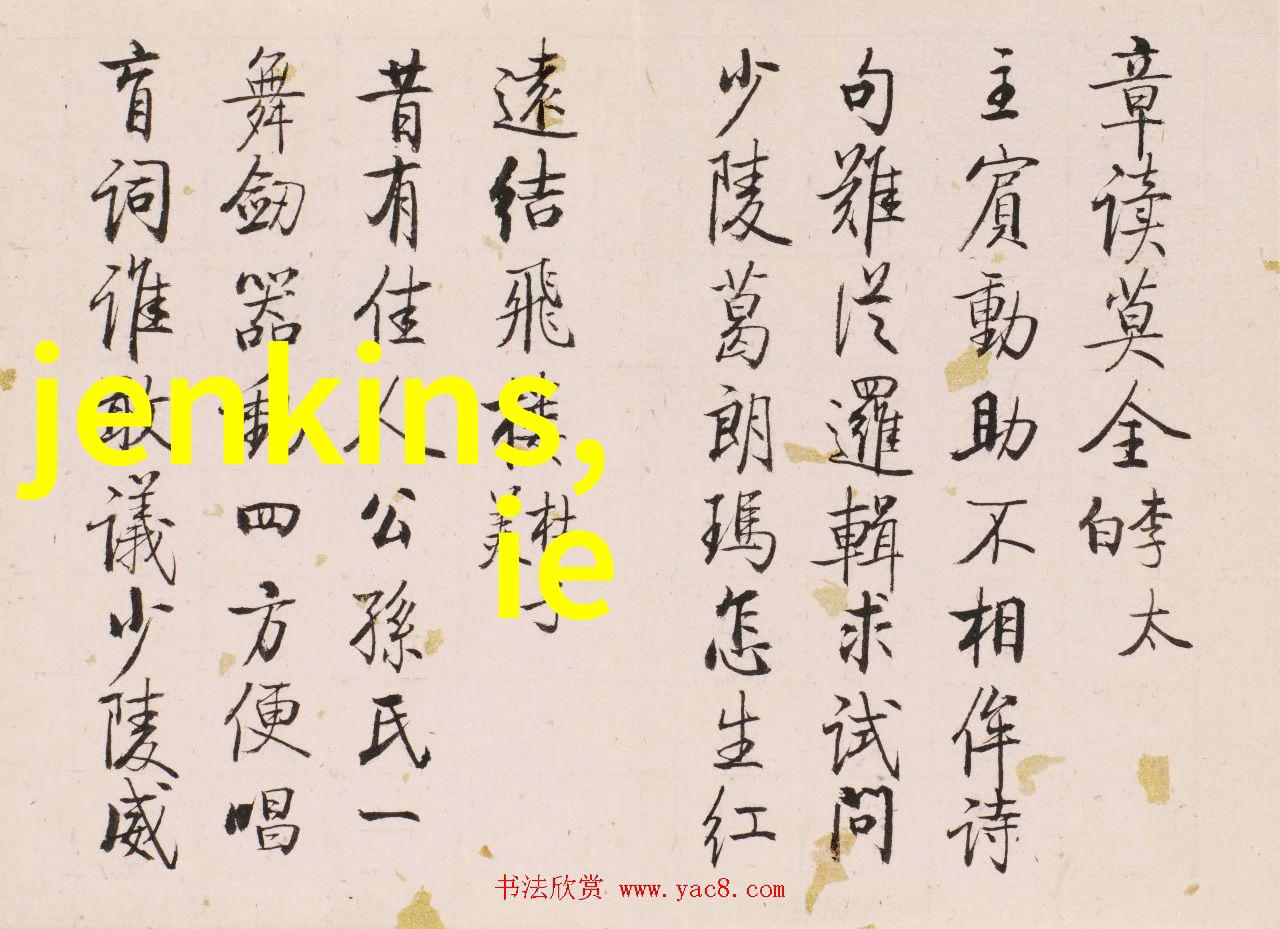 章读莫全李太白
主賓動助不相侔诗
句難從邏輯求试問
少陵葛朗瑪怎生红
遠结飛樓杜子美
昔有佳人公孫氏一
舞劒器動四方便唱
盲词谁敢議少陵威
jenkins,
ie
书法欣赏 www.yac8.com